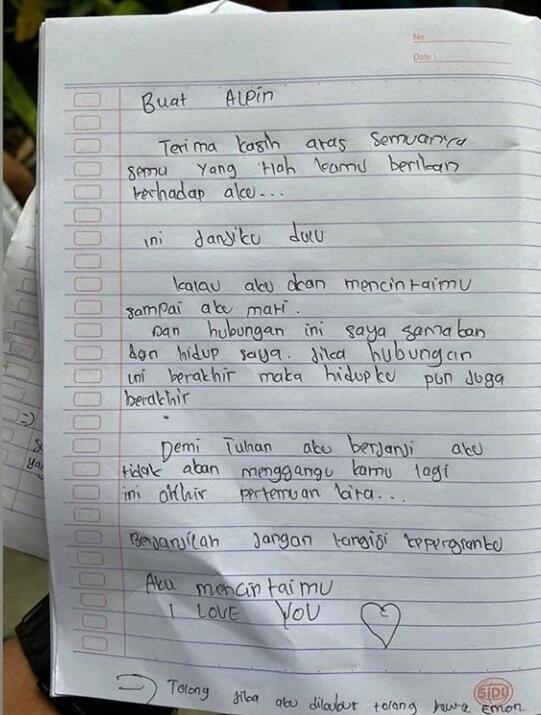 No.
Date :
Buat Alpin
Terima kasih atas semuanya
semu yang tlah kamu berikan
terhadap aku...
ini janjiku dulu
kalau aku akan mencintaimu
sampai aku mati.
Dan hubungan ini saya samakan
dgn hidup saya. Jika hubungan
ini berakhir maka hidupku pun juga
berakhir
Demi Tuhan aku berjanji aku
tidak akan menggangu kamu lagi
ini akhir pertemuan kita...
Berjanjilah jangan tangisi kepergianku
Aku mencintaimu
I LOVE YOU
Tolong jika aku dikubur tolong bawa emon
SIDU